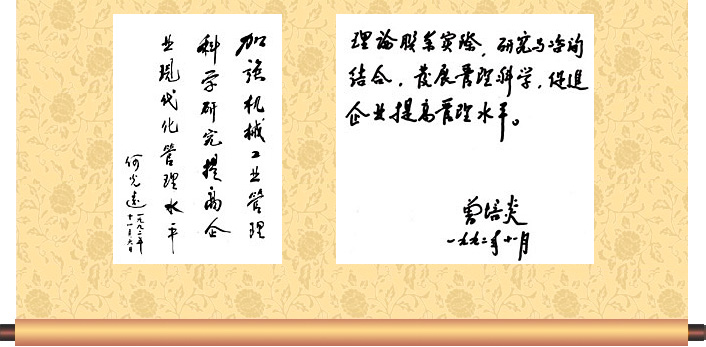 加强机械工业管理
科学研究提高企
业现代化管理水平
何光远
一九九二年
十一月六日
理论联系实际，研究与咨询
结合，发展管理科学，促进
企业提高管理水平。
曾培炎
一九九二年十一月